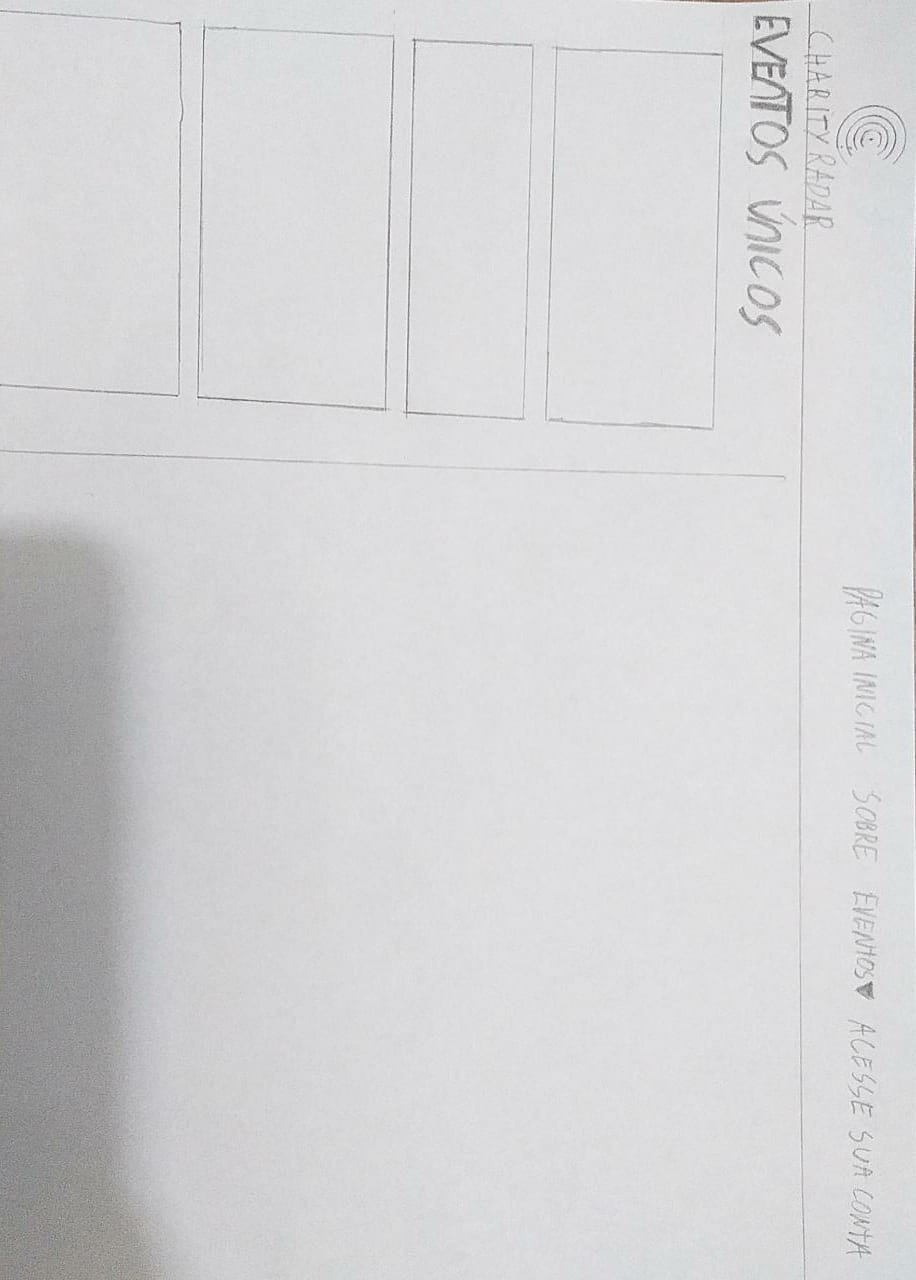 CHARITY RADAR
PAGINA INICIAL SOBRE EVENTOS▼ ACESSE SUA CONTA
EVENTOS ÚNICOS